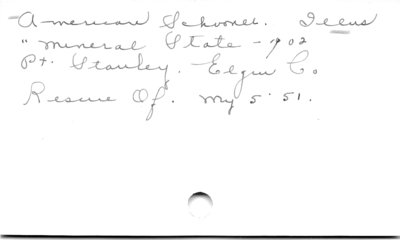 American Schooner. Icens
"Mineral State - 1902
Pt. Stanley. Elgin Co.
Rescue Of. My 5' 51.